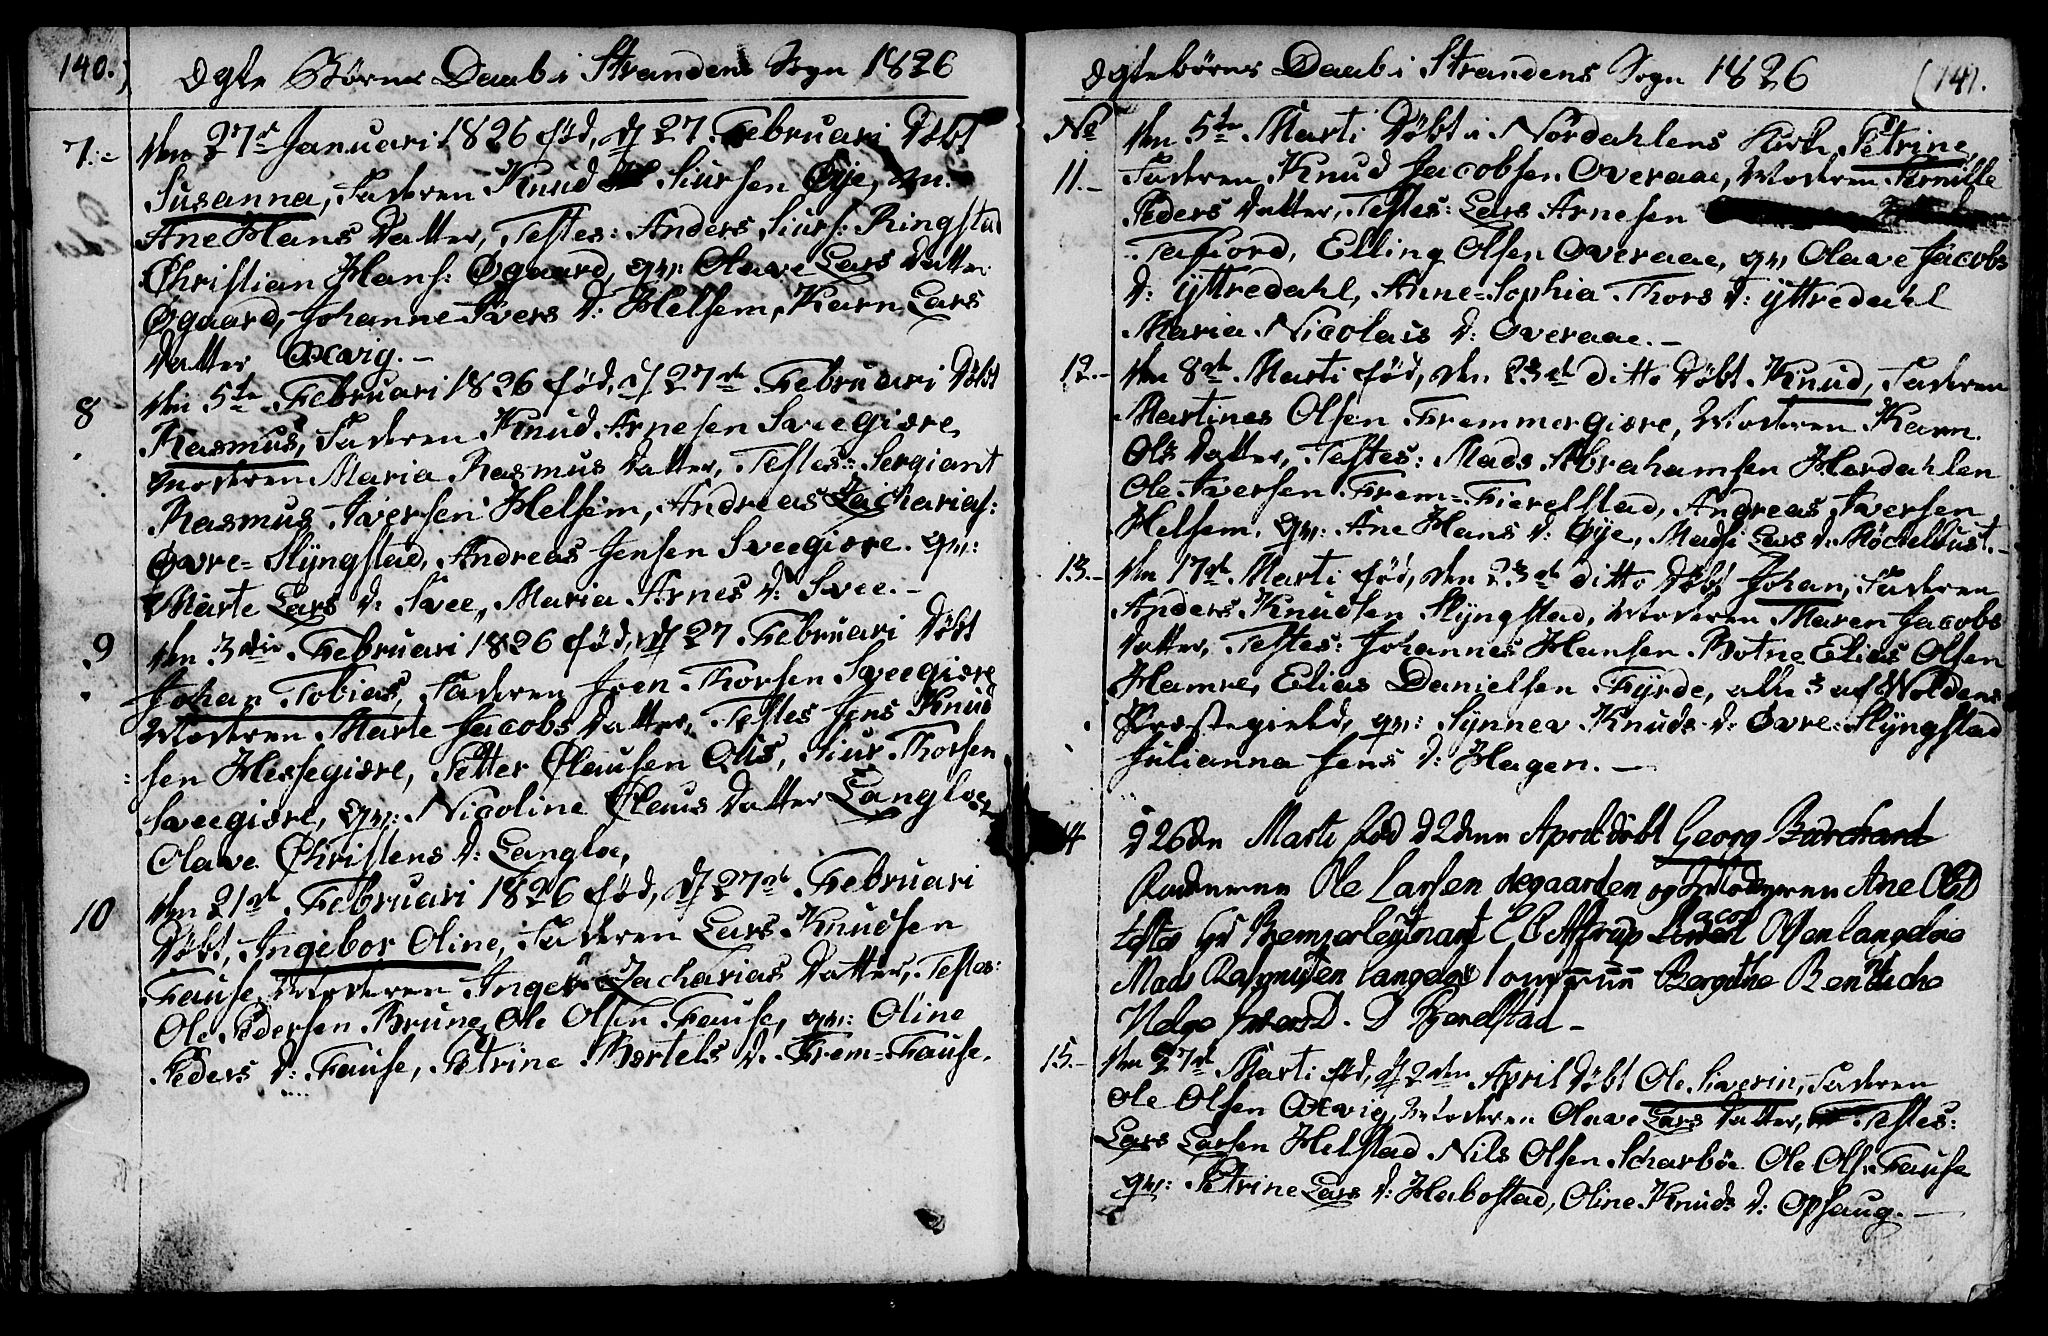 140.)
Ægte Børns Daab i Strandens Sogn 1826
7.- den 27de Januari 1826 fød, d 27 Februari Døbt
Susanna, Faderen Knud Siursen Øÿe, M.
Ane Hans Datter, Testes: Anders Siurs: Ringstad
Christian Hans: Øgaard, qv: Olave Lars Datter
Øgaard, Johanne Ivers D: Helsem, Karn Lars
Datter Oxvig.-
8 den 5te Februari 1826 fød, d 27de Februari Døbt
Rasmus, Faderen Knud Arnesen Sveegiære
Moderen Maria Rasmus Datter, Testes: Sergiant
Rasmus Iversen Helsem, Andreas Zacharias:
Øvre=Slÿngstad, Andreas Jensen Sveegiære. qv:
Marte Lars D: Svee, Maria Arnes D: Svee.-
9 den 3die Februari 1826 fød, d 27 Februari Døbt
Johan Tobias, Faderen Joen Thorsen Sveegiære
Moderen Marte Jacobs Datter, Testes Jens Knud
sen Hessegiære, Petter Clausen Ous, Siur Thorsen
Sveegiære, qv: Nicoline Claus Datter Langloe,
Olave Christens D: Langloe,
10 den 21de Februari 1826 fød, d 27de Februari
Døbt, Ingebor Oline, Faderen Lars Knudsen
Fause, Moderen Inger Zacharias Datter, Testes:
Ole Pedersen Brune, Ole Olsen Fause, qv: Oline
Peders D: Fause, Petrine Bertels D. Frem=Fause.
Ægtebørns Daab i Strandens Sogn 1826
(141.
No den 5te Marti Døbt i Nordahlens Kirke Petrine,
11.- Faderen Knud Jacobsen Overaae, Moderen Pernille
Peders Datter, Testes: Lars Arnesen
Tafiord, Elling Olsen Overaae, qv Olave Jacobs
D: ÿttredahl, Anne=Sophia Thors D: ÿttredahl
Maria Nicolais D: Overaae.-
12.- den 8de Marti fød, den 23de ditto Døbt Knud, Faderen
Martines Olsen Fremmergiære, Moderen Karn
Ols Datter, Testes: Mads Abrahamsen Hordahlen
Ole Iversen Frem=Fierelstad, Andreas Iversen
Helsem. qv: Ane Hans D: Øÿe, Madsi Lars D: Möchelbust.-
13.- den 17de Marti fød, den 23de ditto Døbt Johan, Faderen
Anders Knudsen Slÿngstad, Moderen Maren Jacobs
Datter, Testes: Johannes Hansen Botne Elias Olsen
Hamre, Elias Danielsen Fÿrde, alle 3 af Woldens
Præstegield, qv: Sÿnnev Knuds D: Øvre=Slÿngstad
Julianna Jens D: Hagen.-
14 d 26de Marti fød d 2denn April døbt Georg Burchard
Faderenn Ole Larsen Øegaarden og Moderenn Ane Ols D
testes Hr Premierleutnant E C Astrup Jacob Olsen langeloe
Mads Rasmusen langeloe Bergithe Bentzche
Helge Ivers D. D Fjerelstad-
15.- den 27de Marti fød, d 2den April Døbt Ole Severin, Faderen
Ole Olsen Oxvig, Moderen Olave Lars Datter, Testes:
Lars Larsen Helstad Nils Olsen Scharböe Ole Ols: Fause
qv: Petrine Lars D: Habostad, Oline Knuds D: Opsaug.-